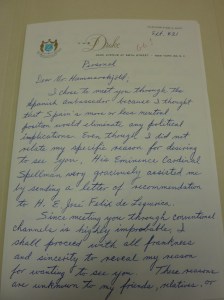 The
Duke
Feb. #21
Personal
Dear Mr. Hammarskjold,
I chose to meet you through the
Spanish Ambassador because I thought
that Spain's more or less neutral
position would eliminate any political
implications. Even though I did not
relate my specific reason for desiring
to see you, His Eminence Cardinal
Spellman very graciously assisted me
by sending a letter of recommendation
to H. E. Jose Felix de Lequerica.
Since meeting you through conventional
channels is highly improbable, I
shall proceed with all frankness
and sincerity to reveal my reason
for wanting to see you. These reasons
are unknown to my friends, relatives, or